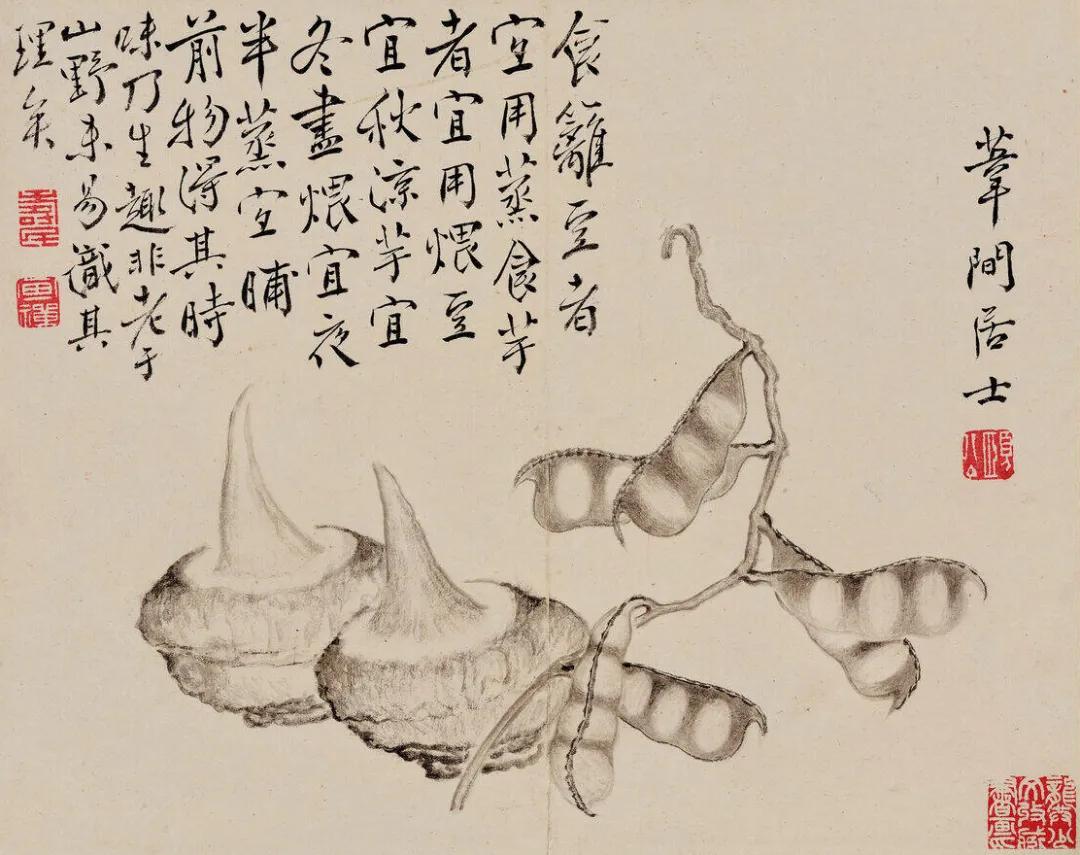 葦間居士
食籬豆者
宜用蒸食芋
者宜用煨豆
宜秋涼芋宜
冬盡煨宜夜
半蒸宜晡
前物得其時
味乃生趣非老于
山野未易識其
理矣
壽民